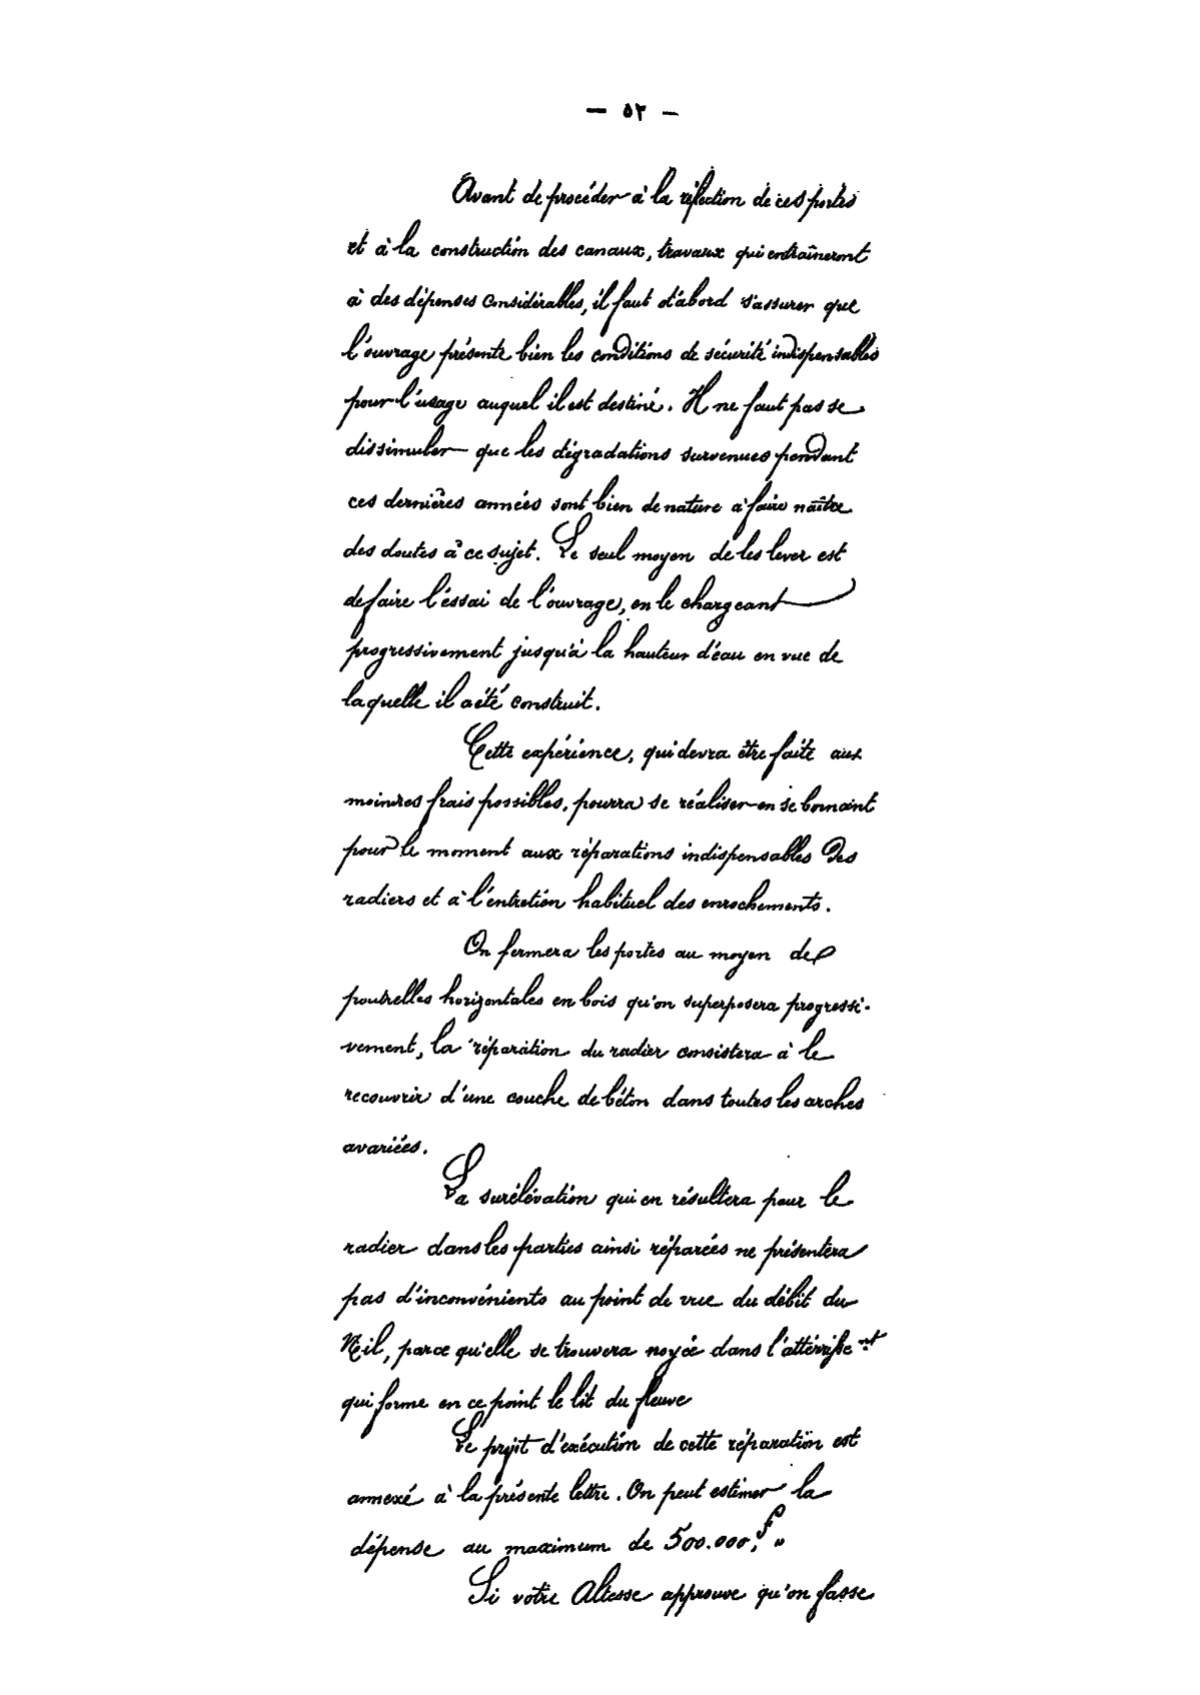 — ٥٢ —
Avant de procéder à la réfection de ces portes
et à la construction des canaux, travaux qui entraîneront
à des dépenses considérables, il faut d'abord s'assurer que
l'ouvrage présente bien les conditions de sécurité indispensables
pour l'usage auquel il est destiné. Il ne faut pas se
dissimuler que les dégradations survenues pendant
ces dernières années sont bien de nature à faire naître
des doutes à ce sujet. Le seul moyen de les lever est
de faire l'éssai de l'ouvrage, en le chargeant
progressivement jusqu'à la hauteur d'eau en vue de
laquelle il a été construit.
Cette expérience, qui devra être faite aux
moindres frais possibles, pourra se réaliser en se bornant
pour le moment aux réparations indispensables des
radiers et à l'entretien habituel des enrochements.
On fermera les portes au moyen de
poutrelles horizontales en bois qu'on superposera progressi-
vement, la réparation du radier consistera à le
recouvrir d'une couche de béton dans toutes les arches
avariées.
La surélévation qui en résultera pour le
radier dans les parties ainsi réparées ne présentera
pas d'inconvénients au point de vue du débit du
Nil, parce qu'elle se trouvera noyée dans l'attérisse.nt
qui forme en ce point le lit du fleuve
Le projet d'exécution de cette réparation est
annexé à la présente lettre. On peut estimer la
dépense au maximum de 500.000,f "
Si votre Altesse approuve qu'on fasse